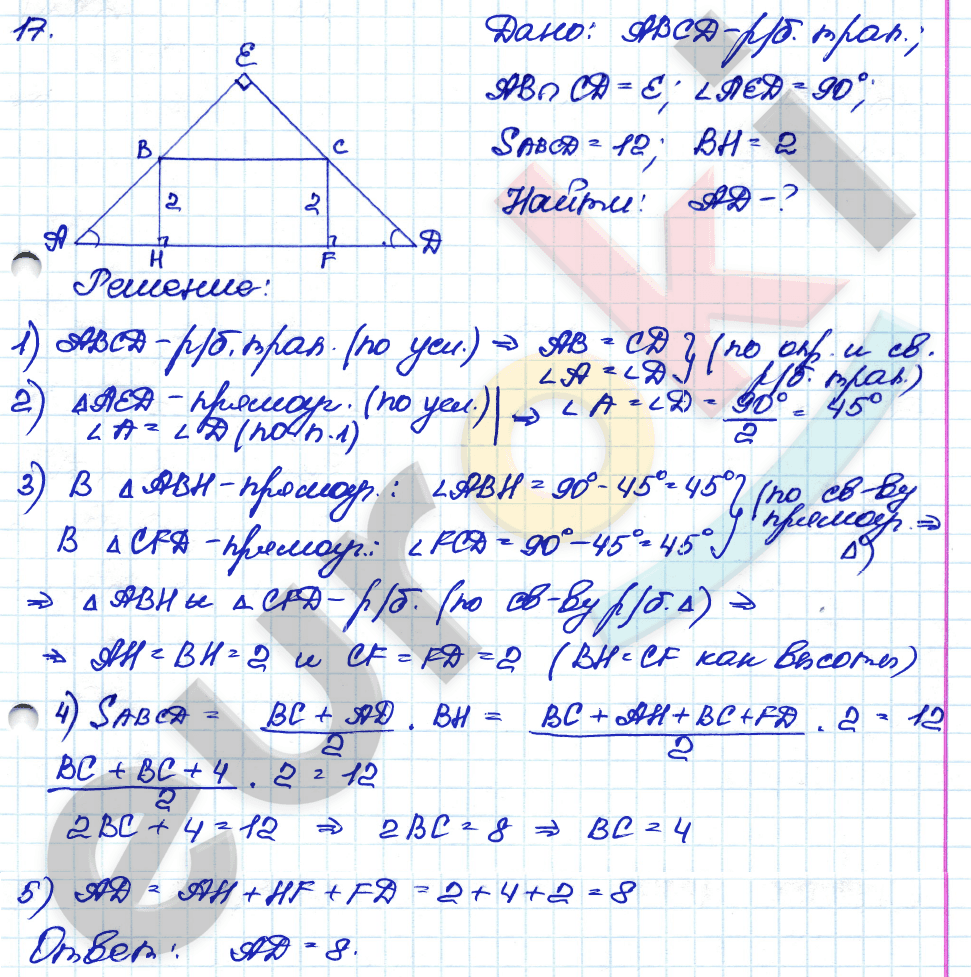 17.
Дано: ABCD - р/б. трап.;
AB ∩ CD = E; ∠AED = 90°;
SABCD = 12; BH = 2
Найти: AD - ?
E
B C
2 2
A H F D
Решение:
1) ABCD - р/б. трап. (по усл.) ⇒ AB = CD } (по опр. и св.
∠A = ∠D } р/б. трап.)
2) △AED - прямоуг. (по усл.) | ⇒ ∠A = ∠D = 90°/2 = 45°
∠A = ∠D (по п.1)
3) В △ABH - прямоуг.: ∠ABH = 90° - 45° = 45° } (по св-ву
прямоуг. ⇒
В △CFD - прямоуг.: ∠FCD = 90° - 45° = 45° } △)
⇒ △ABH и △CFD - р/б. (по св-ву р/б. △) ⇒
⇒ AH = BH = 2 и CF = FD = 2 (BH = CF как высоты)
4) SABCD = (BC + AD)/2 · BH = (BC + AH + BC + FD)/2 · 2 = 12
(BC + BC + 4)/2 · 2 = 12
2BC + 4 = 12 ⇒ 2BC = 8 ⇒ BC = 4
5) AD = AH + HF + FD = 2 + 4 + 2 = 8
Ответ: AD = 8.
euroki